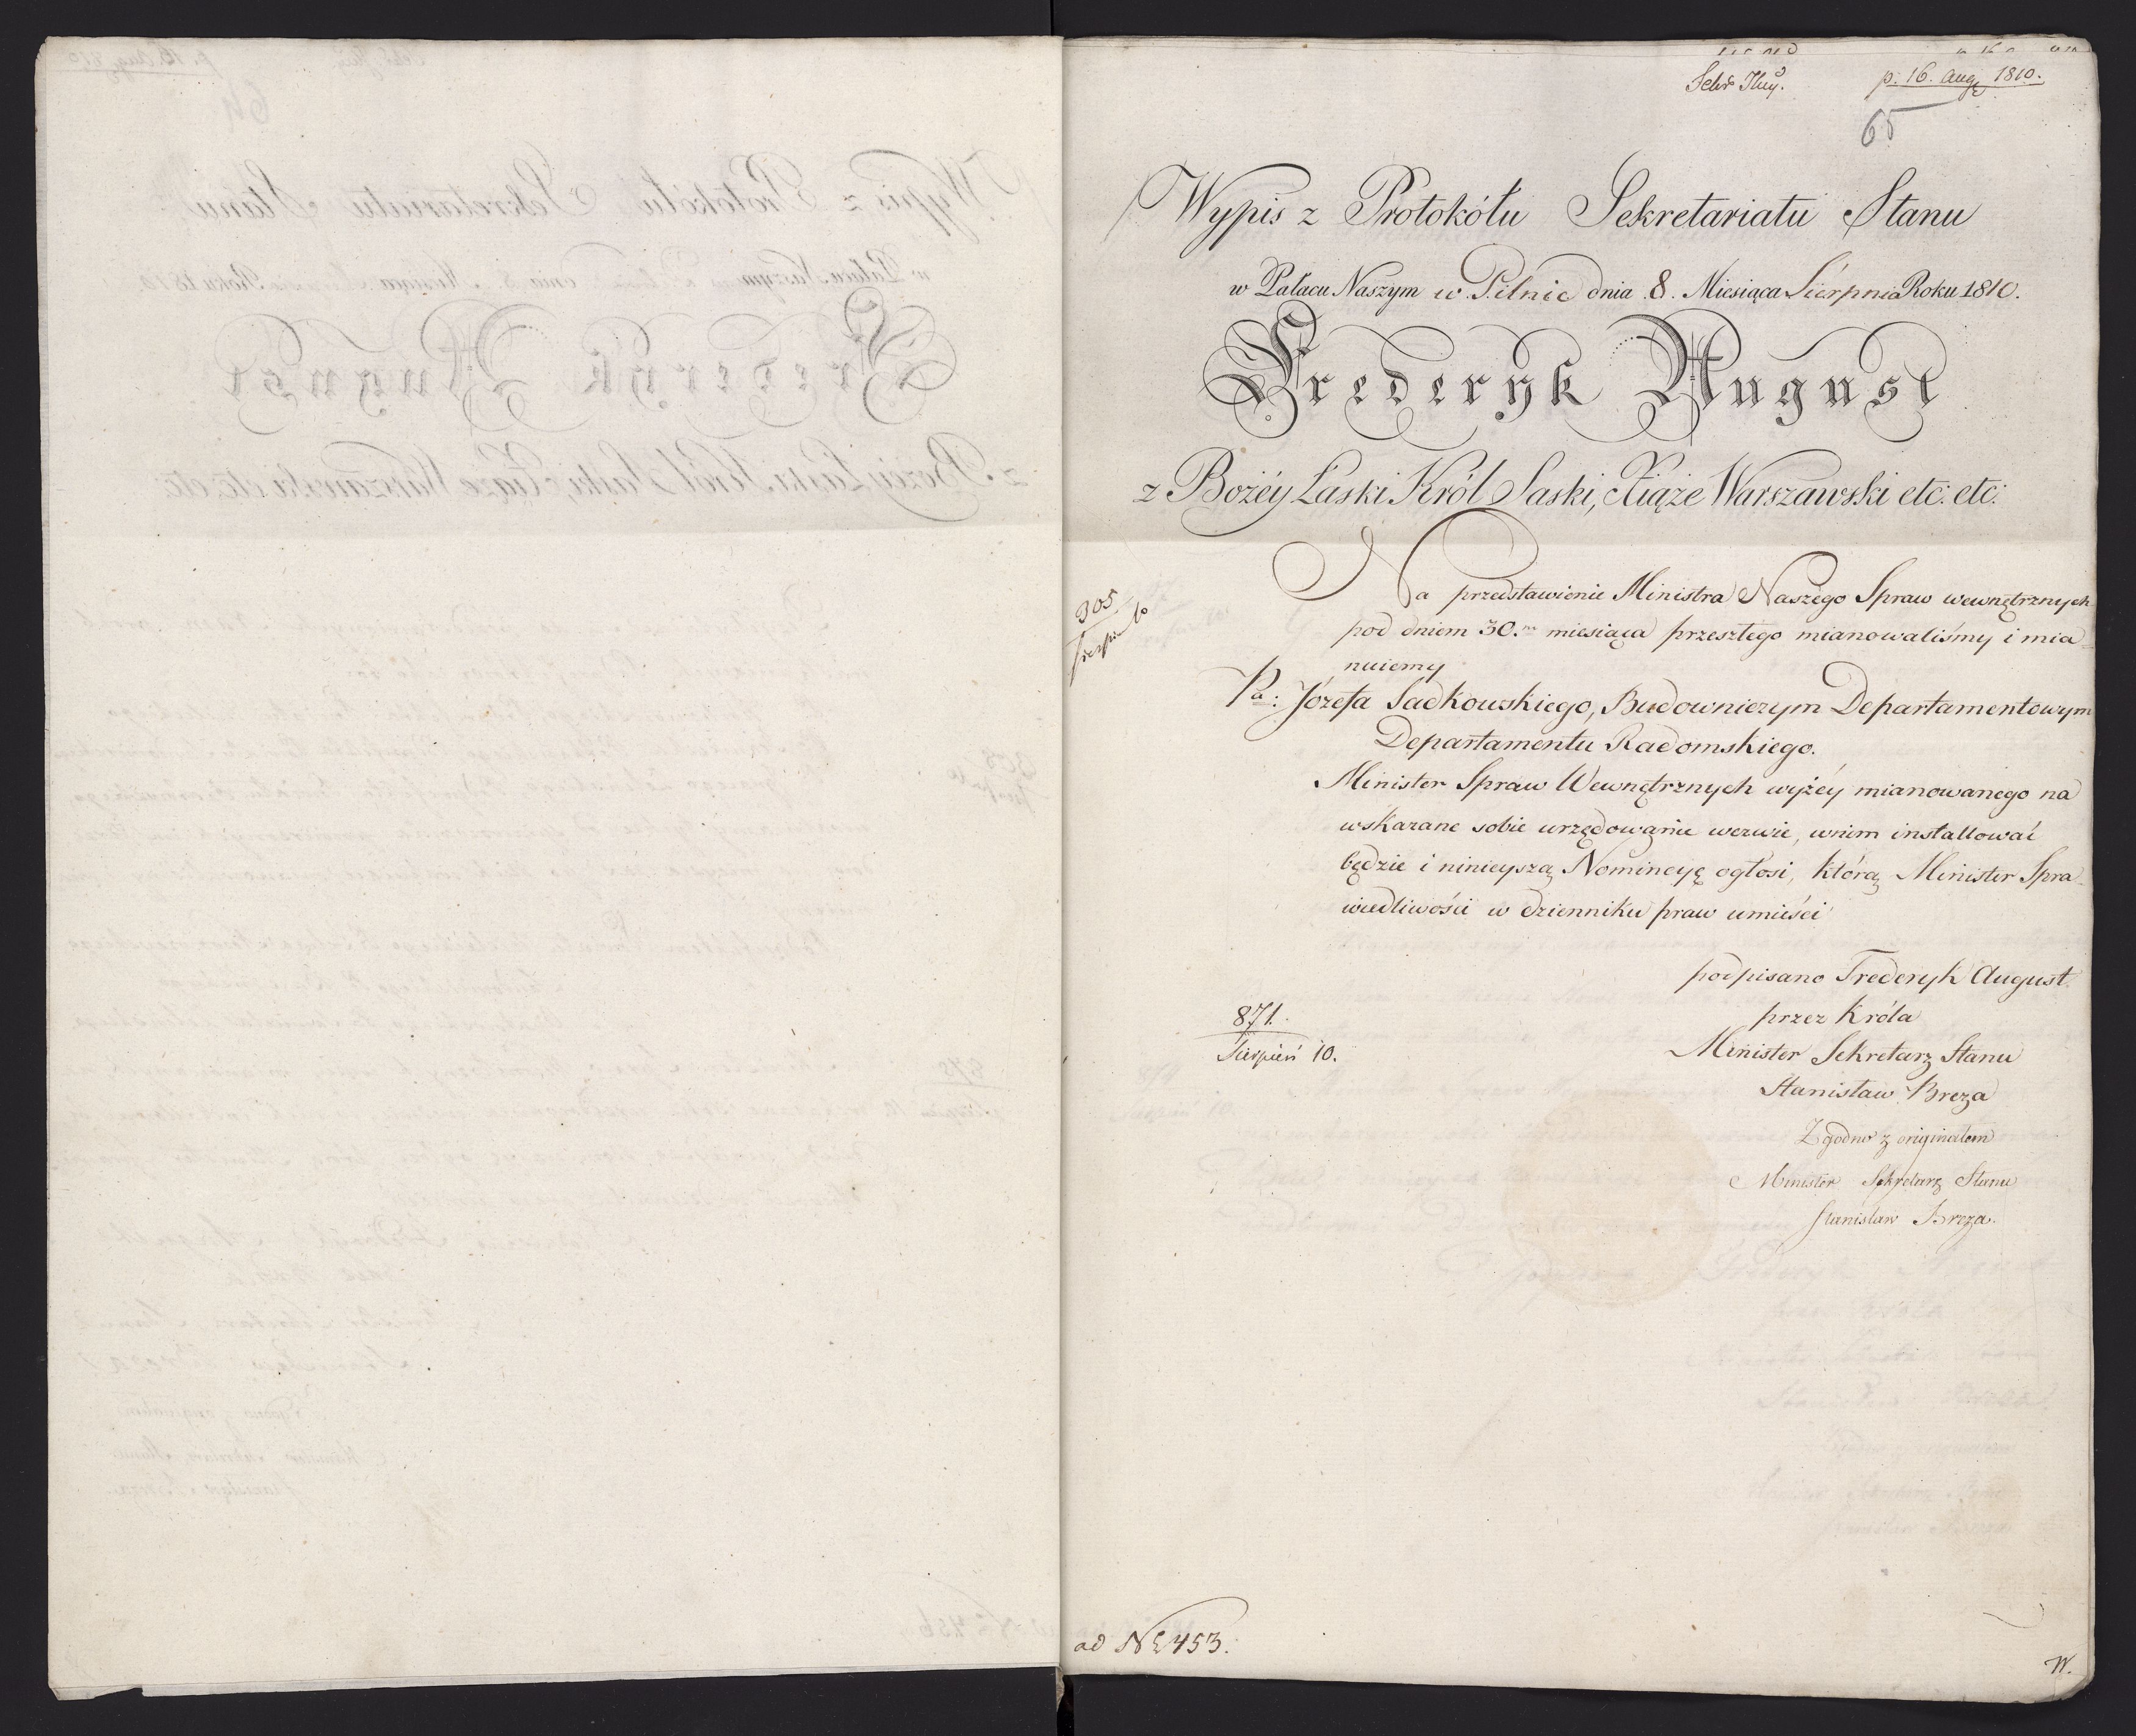 p. 16. Aug 1810.
65
Wypis z Protokółu Sekretariatu Stanu
w Pałacu Naszym w Pilnic dnia 8. Miesiąca Sierpnia Roku 1810.
Frederyk August
z Bożéy Łaski Król Saski, Xiąże Warszawski etc. etc.
Na przedstawienie Ministra Naszego Spraw wewnętrznych
pod dniem 30. miesiąca przeszłego mianowaliśmy i mia-
nuiemy
305
Sierpień 10
Pa: Józefa Sadkowskiego, Budowniczym Departamentowym
Departamentu Radomskiego.
Minister Spraw Wewnętrznych wyżéy mianowanego na
wskazane sobie urzędowanie wezwie, w nim installować
będzie i ninieyszą Nomincyę ogłosi, którą Minister Spra-
wiedliwości w dzienniku praw umieści
podpisano Frederyk August.
przez Króla
871.
Sierpień 10.
Minister Sekretarz Stanu
Stanisław Breza
Zgodno z originałem
Minister Sekretarz Stanu
Stanisław Breza.
ad No 453.
W.